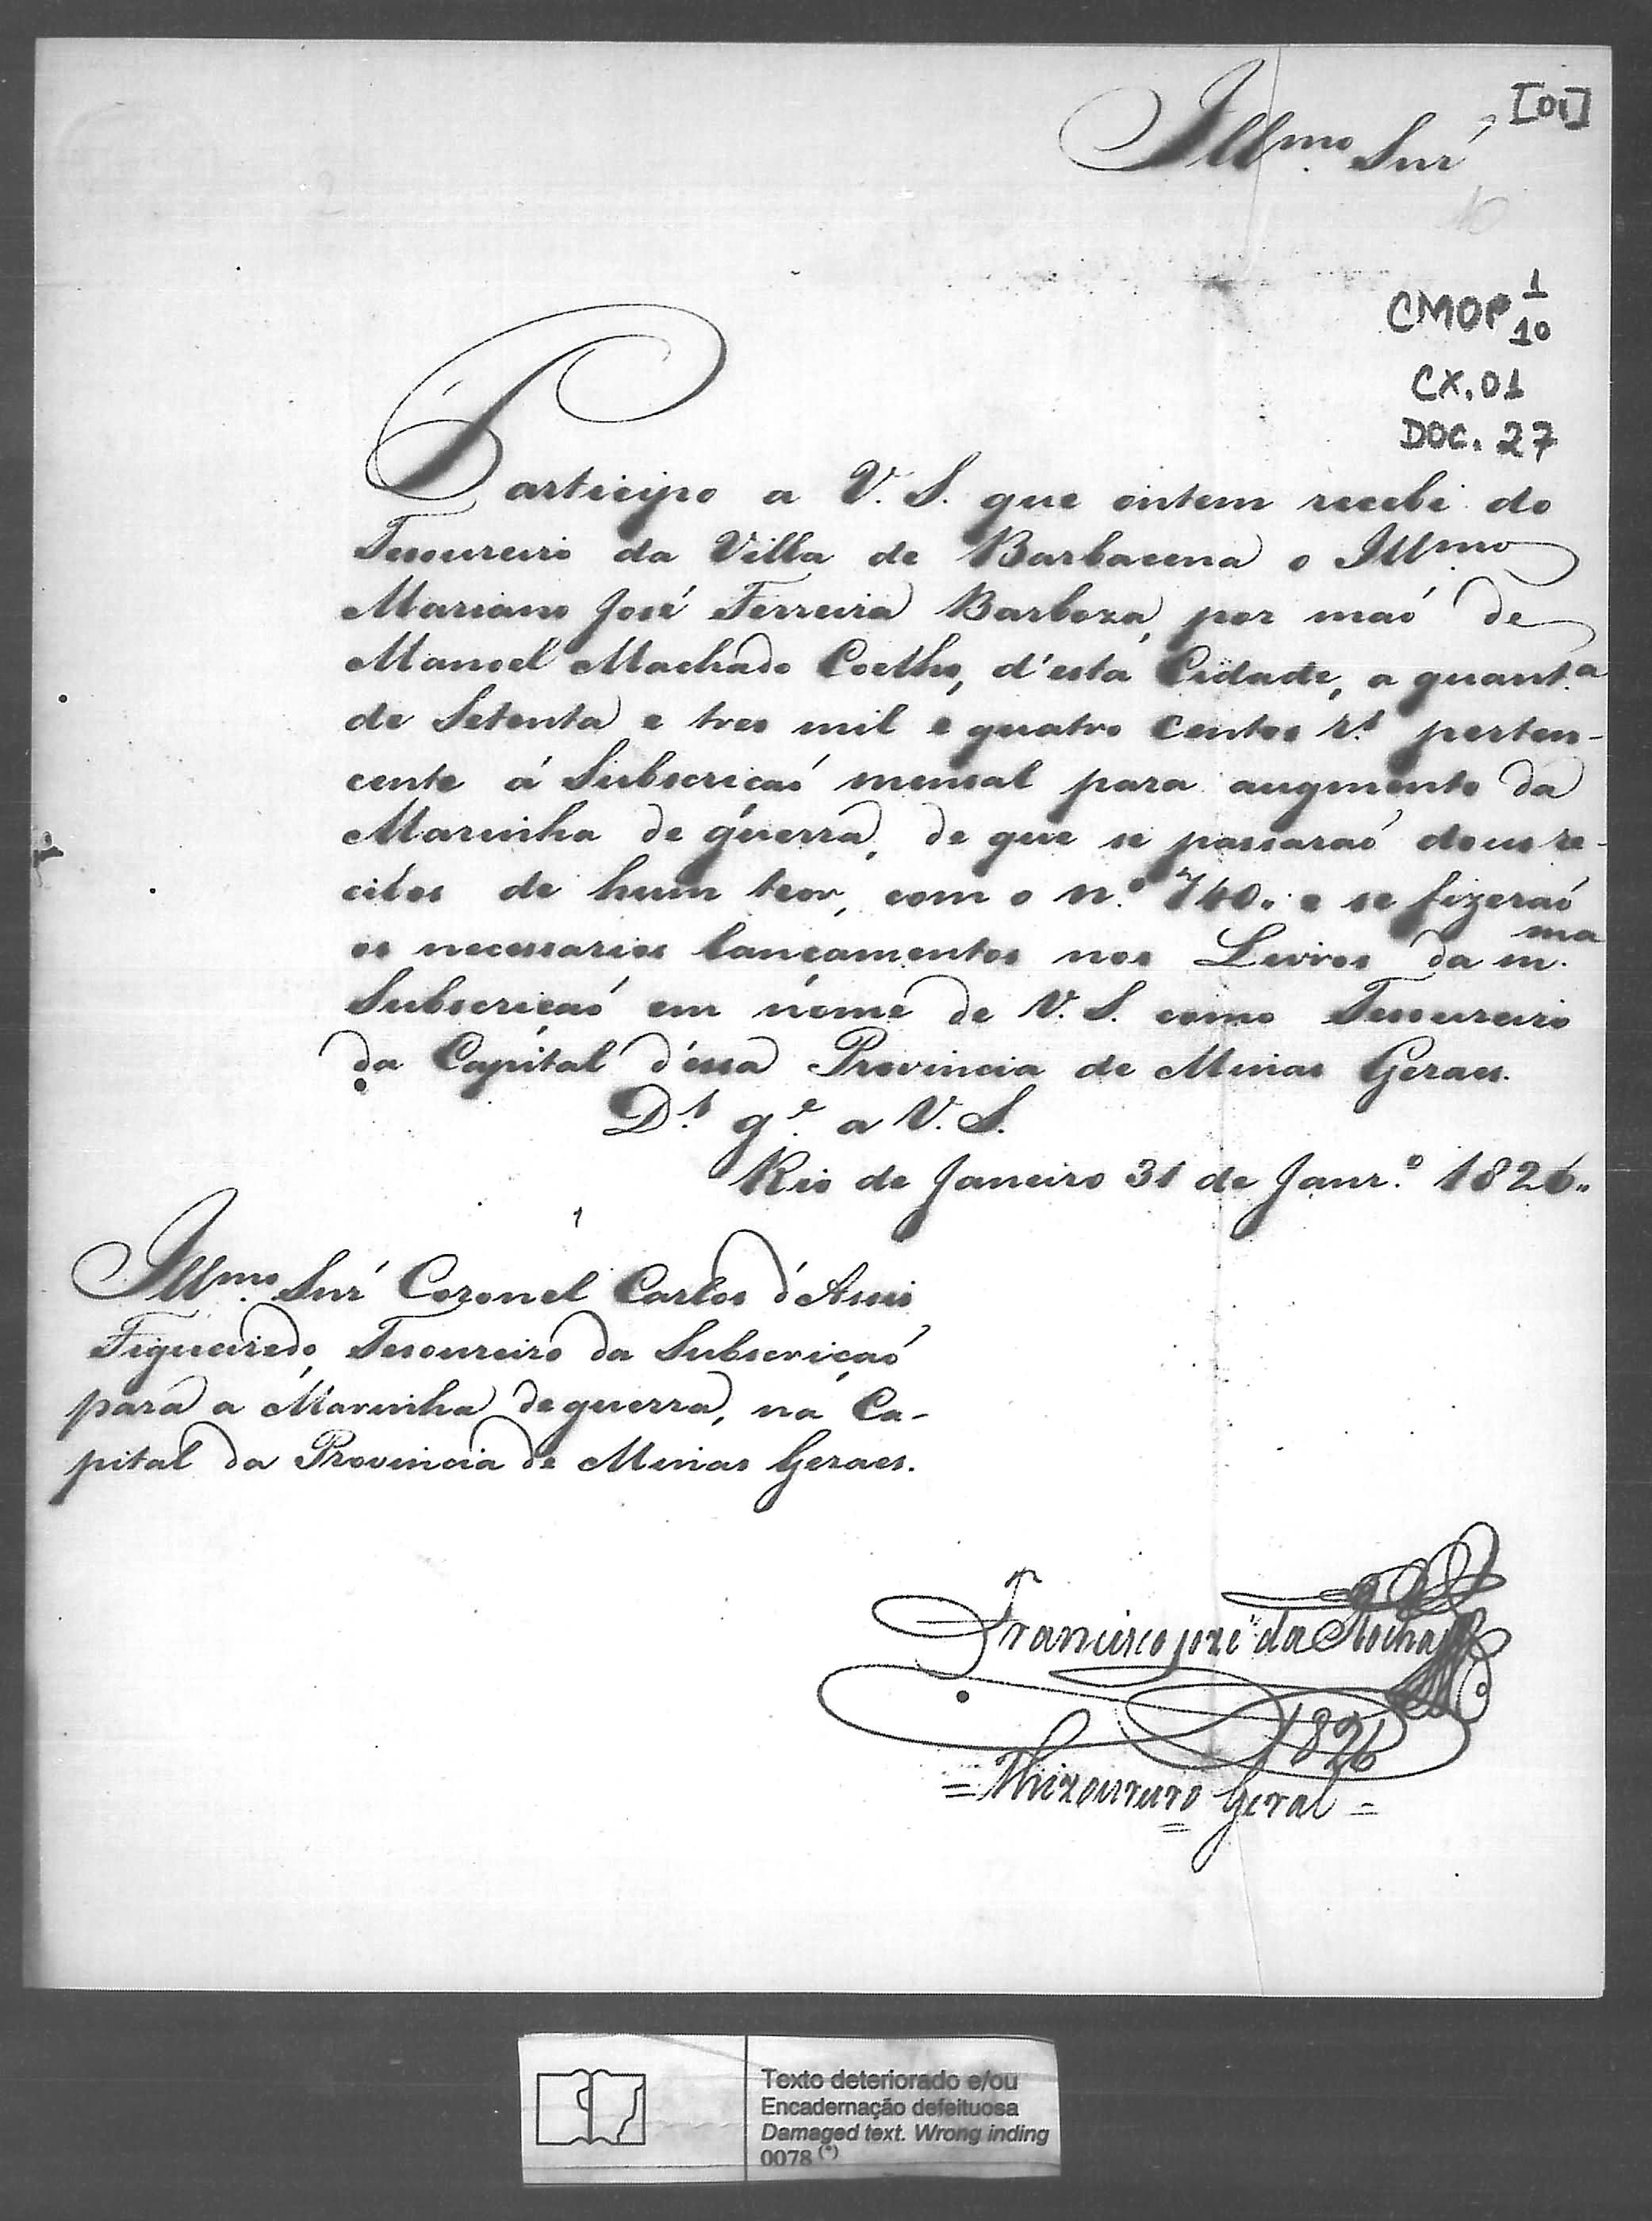 [01]
Illmo. Snr'
10
CMOP 1/10
CX. 01
DOC. 27
Participo a V. S. que ontem recebi do
Tesoureiro da Villa de Barbacena o Illmo.
Mariano José Ferreira Barboza, por maó de
Manoel Machado Coelho, d'esta Cidade, a quant.a
de Setenta e tres mil e quatro centos r.s perten-
cente á Subscriçaó mensal para augmento da
Marinha de guerra, de que se passaraó dous re-
cibos de hum teor, com o n.º 740. e se fizeraó
os necessarios lançamentos nos Livros da m.ma
Subscriçaó em nome de V. S. como Tesoureiro
da Capital d'essa Provincia de Minas Geraes.
D.s g.e a V. S.
Rio de Janeiro 31 de Janr.º 1826..
Illmo. Snr' Coronel Carlos d'Assis
Figueiredo, Tesoureiro da Subscriçaó
para a Marinha de guerra, na Ca-
pital da Provincia de Minas Geraes.
Francisco joze da Rocha
1826
= Thizoureiro Geral =
Texto deteriorado e/ou
Encadernação defeituosa
Damaged text. Wrong inding
0078 (*)